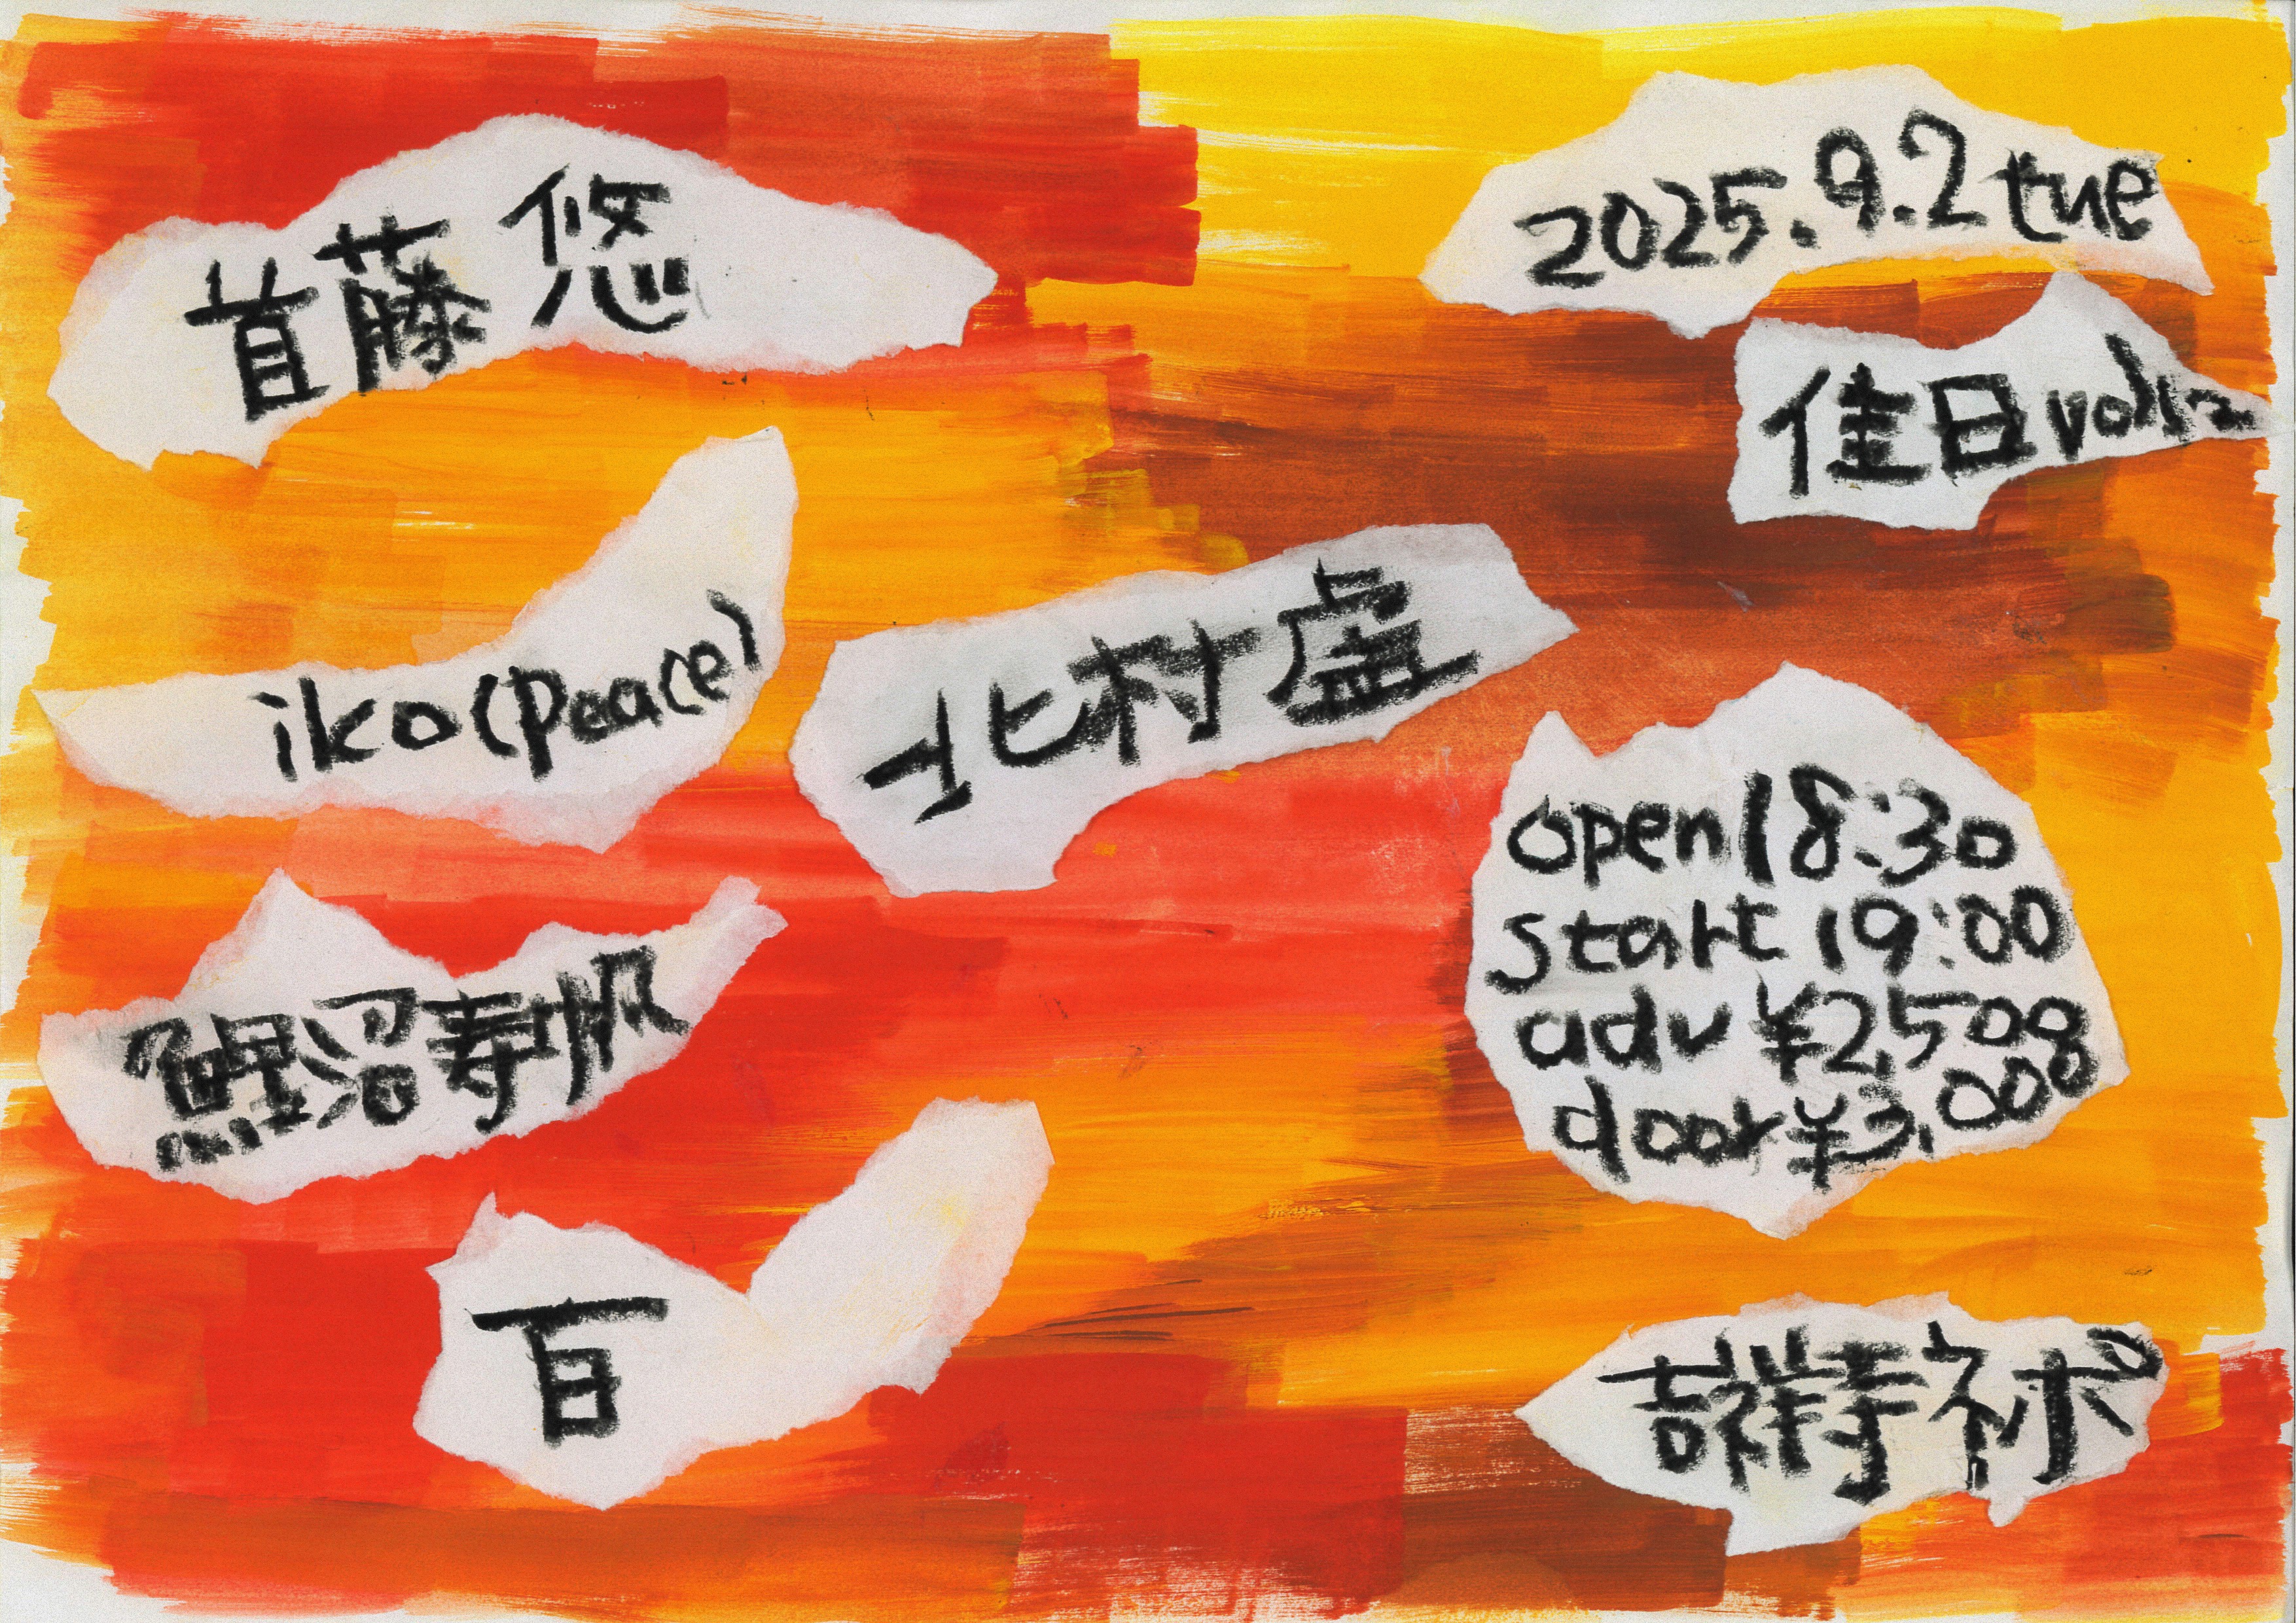 首藤悠
2025.9.2 tue
佳日
iko(peace)
北村虚
open 18:30
start 19:00
adv ¥2,500
door ¥3,000
鯉沼寿帆
百
吉祥寺ネポ